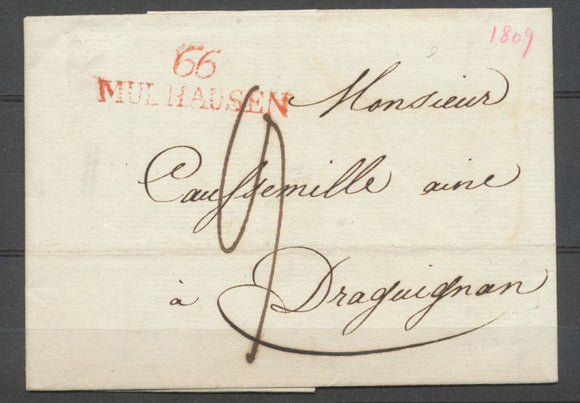 1809
66
MULHAUSEN
Monsieur
Caussemille aine
à Draguignan
9